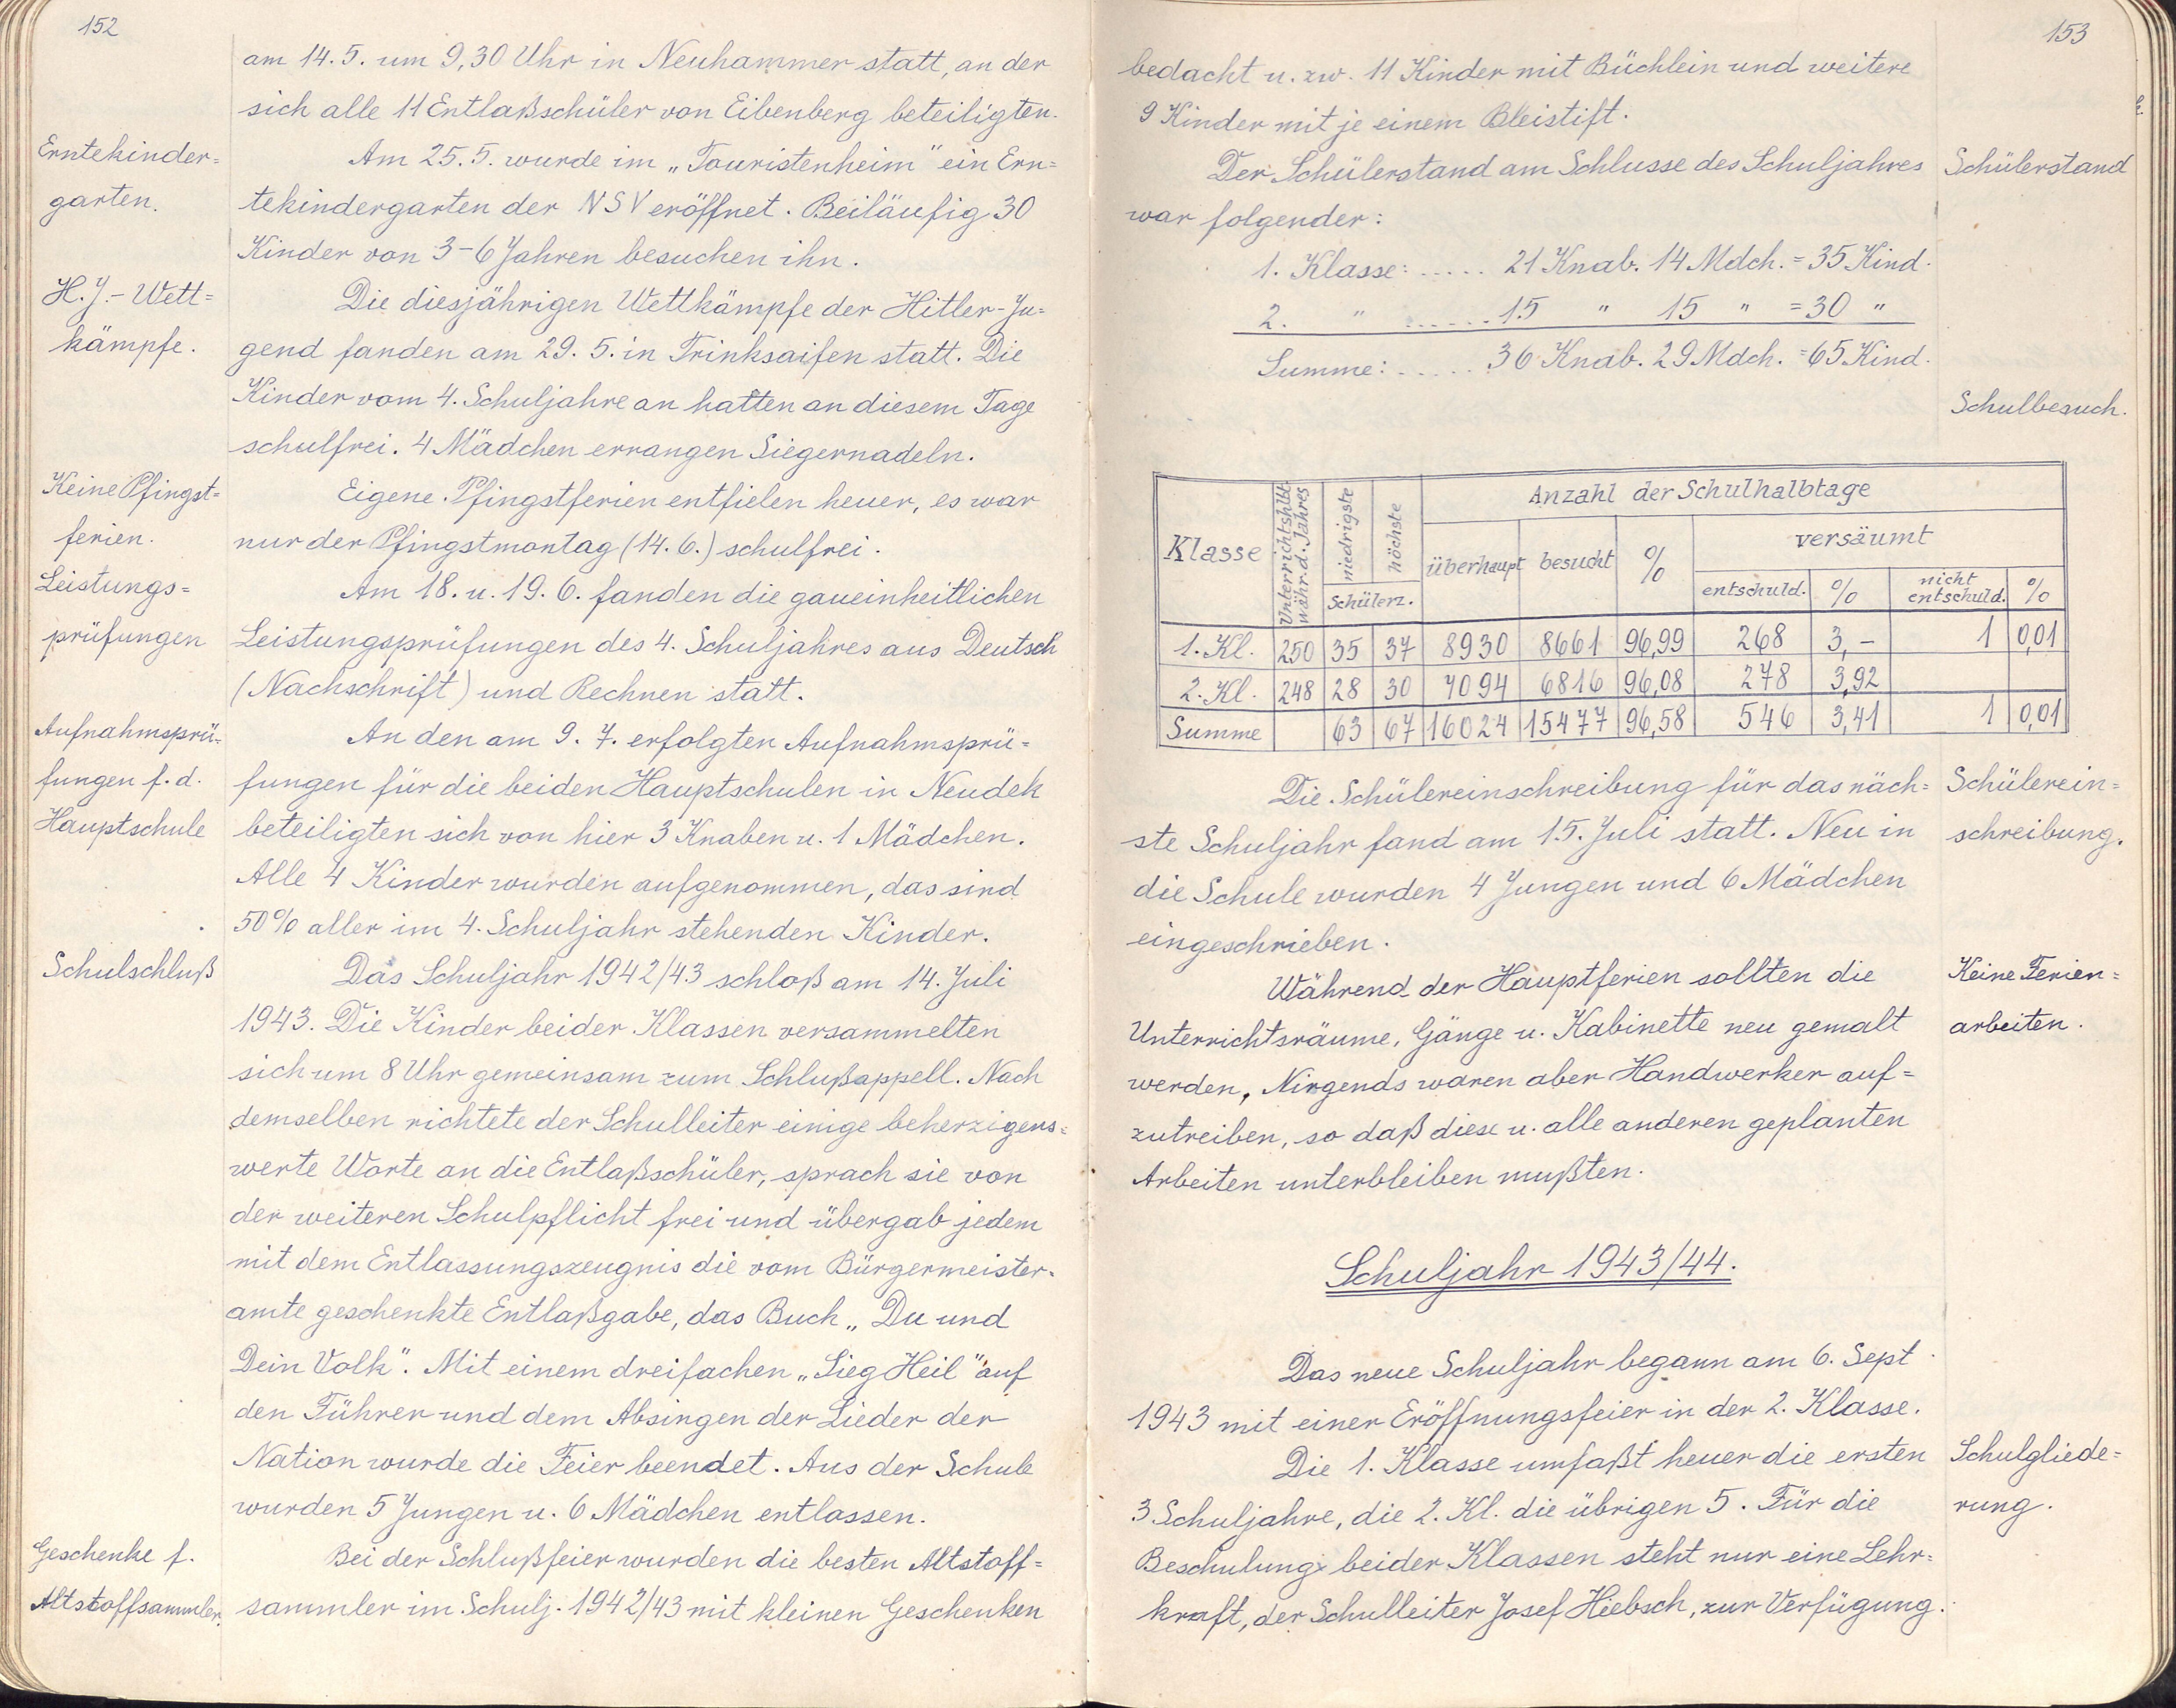 152
am 14. 5. um 9,30 Uhr in Neuhammer statt, an der
sich alle 11 Entlaßschüler von Eibenberg beteiligten.
Erntekinder=
garten.
Am 25. 5. wurde im „Touristenheim" ein Ern=
tekindergarten der NSV eröffnet. Beiläufig 30
Kinder von 3-6 Jahren besuchen ihn.
H. J. - Wett=
kämpfe.
Die diesjährigen Wettkämpfe der Hitler-Ju=
gend fanden am 29. 5. in Trinksaifen statt. Die
Kinder vom 4. Schuljahre an hatten an diesem Tage
schulfrei. 4 Mädchen errangen Siegernadeln.
Keine Pfingst=
ferien.
Eigene Pfingstferien entfielen heuer, es war
nur der Pfingstmontag (14. 6.) schulfrei.
Leistungs=
prüfungen
Am 18. u. 19. 6. fanden die gaueinheitlichen
Leistungsprüfungen des 4. Schuljahres aus Deutsch
(Nachschrift) und Rechnen statt.
Aufnahmsprü=
fungen f. d.
Hauptschule
An den am 9. 7. erfolgten Aufnahmsprü=
fungen für die beiden Hauptschulen in Neudek
beteiligten sich von hier 3 Knaben u. 1 Mädchen.
Alle 4 Kinder wurden aufgenommen, das sind
50% aller im 4. Schuljahr stehenden Kinder.
Schulschluß
Das Schuljahr 1942/43 schloß am 14. Juli
1943. Die Kinder beider Klassen versammelten
sich um 8 Uhr gemeinsam zum Schlußappell. Nach
demselben richtete der Schulleiter einige beherzigens=
werte Worte an die Entlaßschüler, sprach sie von
der weiteren Schulpflicht frei und übergab jedem
mit dem Entlassungszeugnis die vom Bürgermeister-
amte geschenkte Entlaßgabe, das Buch „Du und
Dein Volk". Mit einem dreifachen „Sieg Heil" auf
den Führer und dem Absingen der Lieder der
Nation wurde die Feier beendet. Aus der Schule
wurden 5 Jungen u. 6 Mädchen entlassen.
Geschenke f.
Altstoffsammler.
Bei der Schlußfeier wurden die besten Altstoff=
sammler im Schulj. 1942/43 mit kleinen Geschenken
153
bedacht u. zw. 11 Kinder mit Büchlein und weitere
9 Kinder mit je einem Bleistift.
Der Schülerstand am Schlusse des Schuljahres
Schülerstand
war folgender:
1. Klasse: ..... 21 Knab. 14 Mdch. = 35 Kind.
2. " ...... 15 " 15 " = 30 "
Summe: ..... 36 Knab. 29 Mdch. = 65 Kind.
Schulbesuch.
Klasse
Unterrichtshlbt.
währ. d. Jahres
niedrigste
höchste
Schülerz.
Anzahl der Schulhalbtage
überhaupt besucht %
versäumt
entschuld. % nicht entschuld. %
1. Kl. 250 35 37 8930 8661 96,99 268 3,- 1 0,01
2. Kl. 248 28 30 7094 6816 96,08 278 3,92
Summe 63 67 16024 15477 96,58 546 3,41 1 0,01
Die Schülereinschreibung für das näch=
Schülerein=
schreibung.
ste Schuljahr fand am 15. Juli statt. Neu in
die Schule wurden 4 Jungen und 6 Mädchen
eingeschrieben.
Während der Hauptferien sollten die
Keine Ferien=
arbeiten.
Unterrichtsräume, Gänge u. Kabinette neu gemalt
werden, Nirgends waren aber Handwerker auf=
zutreiben, so daß diese u. alle anderen geplanten
Arbeiten unterbleiben mußten.
Schuljahr 1943/44.
Das neue Schuljahr begann am 6. Sept.
1943 mit einer Eröffnungsfeier in der 2. Klasse.
Die 1. Klasse umfaßt heuer die ersten
Schulgliede=
rung.
3 Schuljahre, die 2. Kl. die übrigen 5. Für die
Beschulung beider Klassen steht nur eine Lehr=
kraft, der Schulleiter Josef Hiebsch, zur Verfügung.